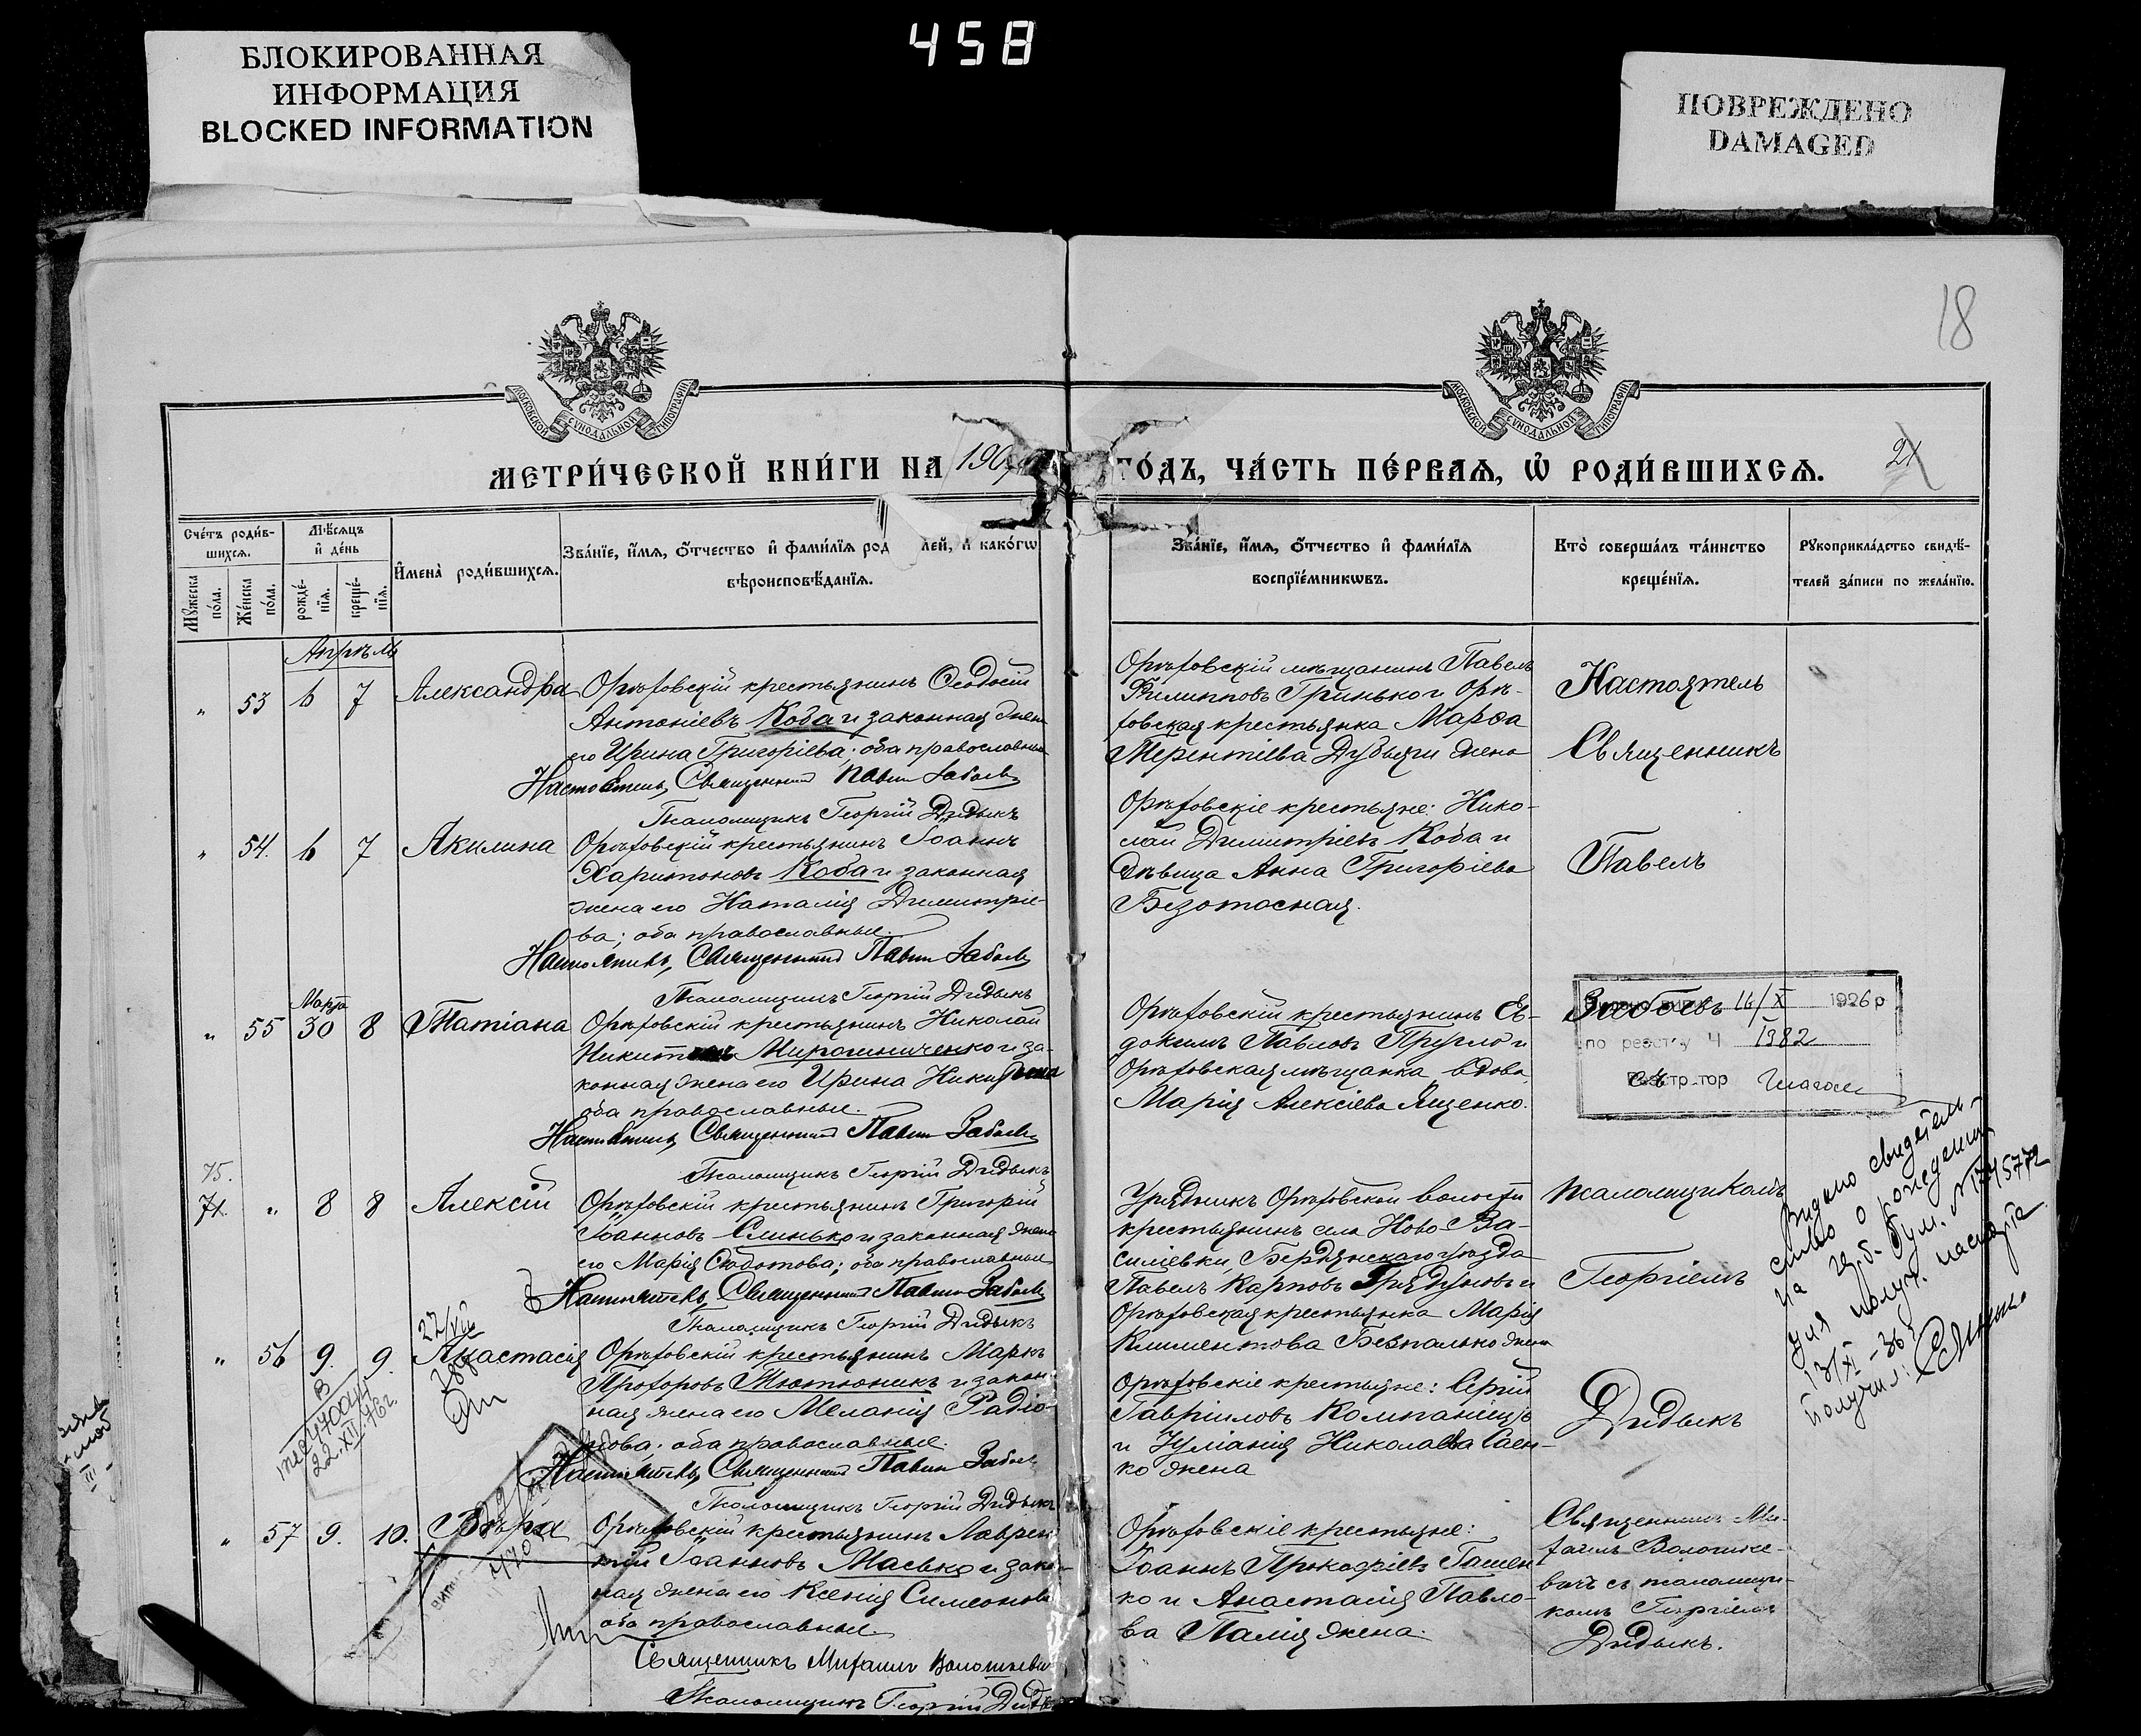 458
БЛОКИРОВАННАЯ
ИНФОРМАЦИЯ
BLOCKED INFORMATION
ПОВРЕЖДЕНО
DAMAGED
18
МОСКОВСКОЙ СѴНОДАЛЬНОЙ ТИПОГРАФІИ
МОСКОВСКОЙ СѴНОДАЛЬНОЙ ТИПОГРАФІИ
МЕТРИ́ЧЕСКОЙ КНИ́ГИ НА 190
ГО́ДЪ, ЧА́СТЬ ПЕ́РВАЯ, Ѡ҆ РОДИ́ВШИХСЯ.
21
Сче́тъ роди́в-
шихся.
Мꙋжеска по́ла.
Же́нска по́ла.
Мѣ́сяцъ и҆ де́нь
рожде́-нїя.
креще́-нїя.
И҆мена̀ роди́вшихся.
Зва́нїе, и҆́мя, ѻ҆́тчество и҆ фами́лїя род лей, и҆ како́гѡ
вѣроисповѣ́данїя.
Зва́нїе, и҆́мя, ѻ҆́тчество и҆ фами́лїя
воспрїе́мникѡвъ.
Кто̀ соверша́лъ та́инство
креще́нїя.
Рꙋкоприкла́дство свидѣ́-
телей за́писи по жела́нїю.
Апрѣль
" 53 6 7 Александра
Орѣховскій крестьянинъ Ѳеодосій
Антоніевъ Коба и законная жена
его Ирина Григоріева; оба православные
Настоятель, Священникъ Павелъ
Псаломщикъ Георгій Дидыкъ
Орѣховскій мѣщанинъ Павелъ
Филипповъ Гринько и Орѣ-
ховская крестьянка Марѳа
Терентіева Дубяги жена
Настоятель
Священникъ
" 54. 6 7 Акилина
Орѣховскій крестьянинъ Іоаннъ
Харитоновъ Коба и законная
жена его Наталія Димитріе-
ва; оба православные.
Настоятель, Священникъ Павелъ
Псаломщикъ Георгій Дидыкъ
Орѣховскіе крестьяне: Нико-
лай Димитріевъ Коба и
дѣвица Анна Григоріева
Безотосная.
Павелъ
Марта
" 55 30 8 Татіана
Орѣховскій крестьянинъ Николай
Мирошниченко и за-
конная жена его Ирина
оба православные.
Настоятель, Священникъ Павелъ
Псаломщикъ Георгій Дидыкъ
Орѣховскій крестьянинъ Ев-
докимъ Павловъ Пругло и
Орѣховская мѣщанка вдова
Марія Алексіева Яценко.
14/X 1926 р
по реестру Ч 1982
съ
75.
71. " 8 8 Алексій
Орѣховскій крестьянинъ Григорій
Іоанновъ Слинько и законная жена
его Марія Ѳедотова; оба православные
Настоятель, Священникъ Павелъ
Псаломщикъ Георгій Дидыкъ
Урядникъ Орѣховской волости
крестьянинъ села Ново-Ва-
силіевки Бердянскаго уѣзда
Павелъ Карповъ и
Орѣховская крестьянка Марія
Климентова Безпалько жена
псаломщикомъ
Георгіемъ
Видано свидетель-
ство о рождении
на
для получ. паспорта
13/XI-36
получил:
" 56 9. 9. Анастасія
22.XII.76г.
Орѣховскій крестьянинъ Маркъ
Прохоровъ Тютюникъ и закон-
ная жена его Меланія Радіо-
нова; оба православные.
Настоятель, Священникъ Павелъ
Псаломщикъ Георгій Дидыкъ
Орѣховскіе крестьяне: Сергій
Гавріиловъ Компаніецъ
и Іуліанія Николаева Саен-
ко жена
Дидыкъ
" 57 9. 10. Вѣра
Орѣховскій крестьянинъ Лаврен-
тій Іоанновъ Масько и закон-
ная жена его Ксенія Симеонова
оба православные.
Священникъ Михаилъ
Псаломщикъ Георгій Дидыкъ
Орѣховскіе крестьяне:
Іоаннъ Прокофіевъ Гашен-
ко и Анастасія Павло-
ва Палія жена.
Священникъ Ми-
хаилъ Волошке-
вичъ съ псаломщи-
комъ Георгіемъ
Дидыкъ.